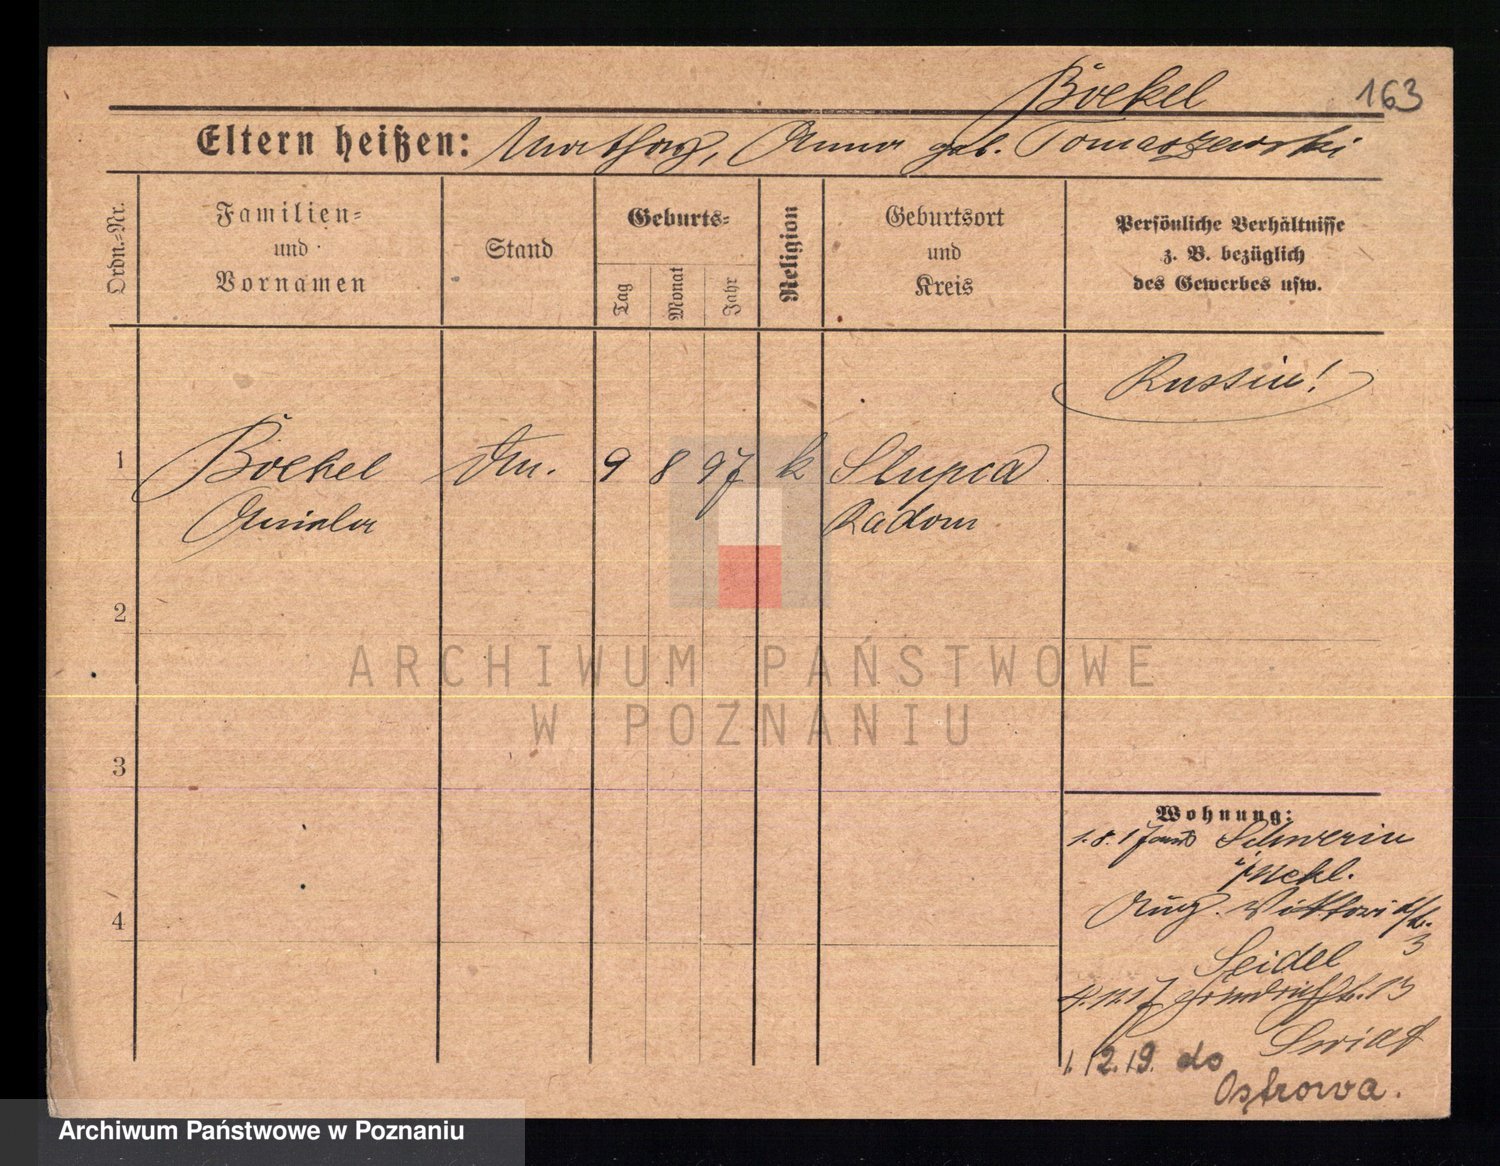 Boekel 163
Eltern heißen: Mathay, Anna geb. Tomaszewski
Ordn.=Nr.
Familien=
und
Vornamen
Stand
Geburts=
Tag
Monat
Jahr
Religion
Geburtsort
und
Kreis
Persönliche Verhältnisse
z. B. bezüglich
des Gewerbes usw.
Russin!
1 Boekel 9 8 97 k Slupca
Aniela Radom
2
3
4
ARCHIWUM PAŃSTWOWE
W POZNANIU
Wohnung:
1.8.17 aus Schwerin
i/Meckl.
Seidel
4.11.17 13
1.12.19. do
Ostrowa.
Archiwum Państwowe w Poznaniu